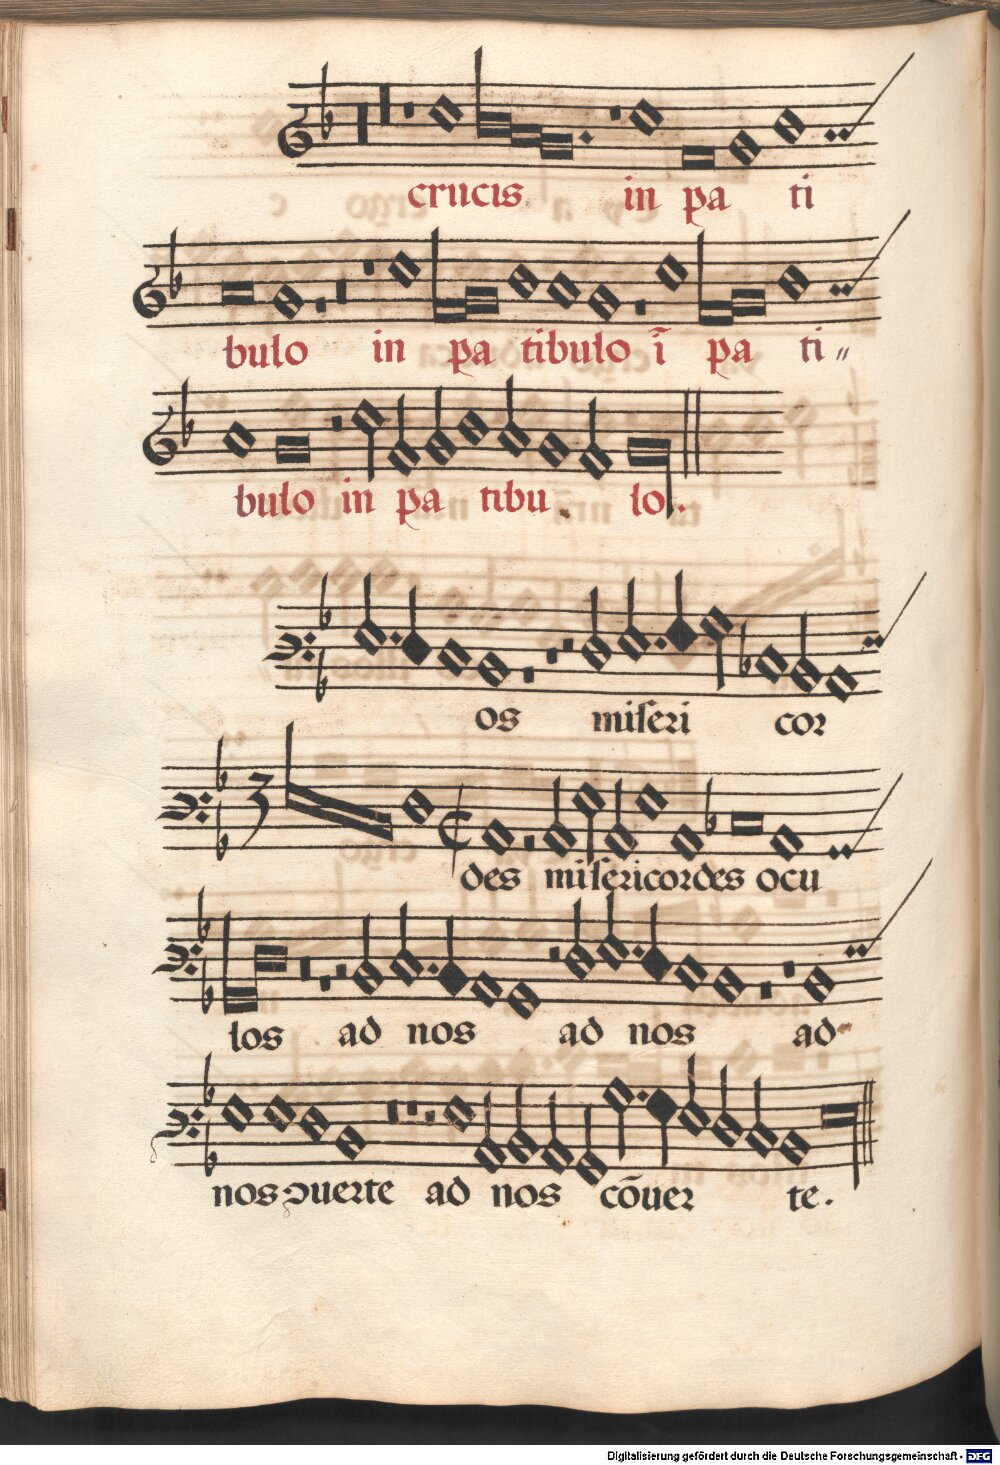 crucis in pa ti
bulo in pa tibulo ī pa ti〃
bulo in pa tibu lo.
os miseri cor
des misericordes ocu
los ad nos ad nos ad
nos ꝯuerte ad nos cōuer te.
Digitalisierung gefördert durch die Deutsche Forschungsgemeinschaft - DFG